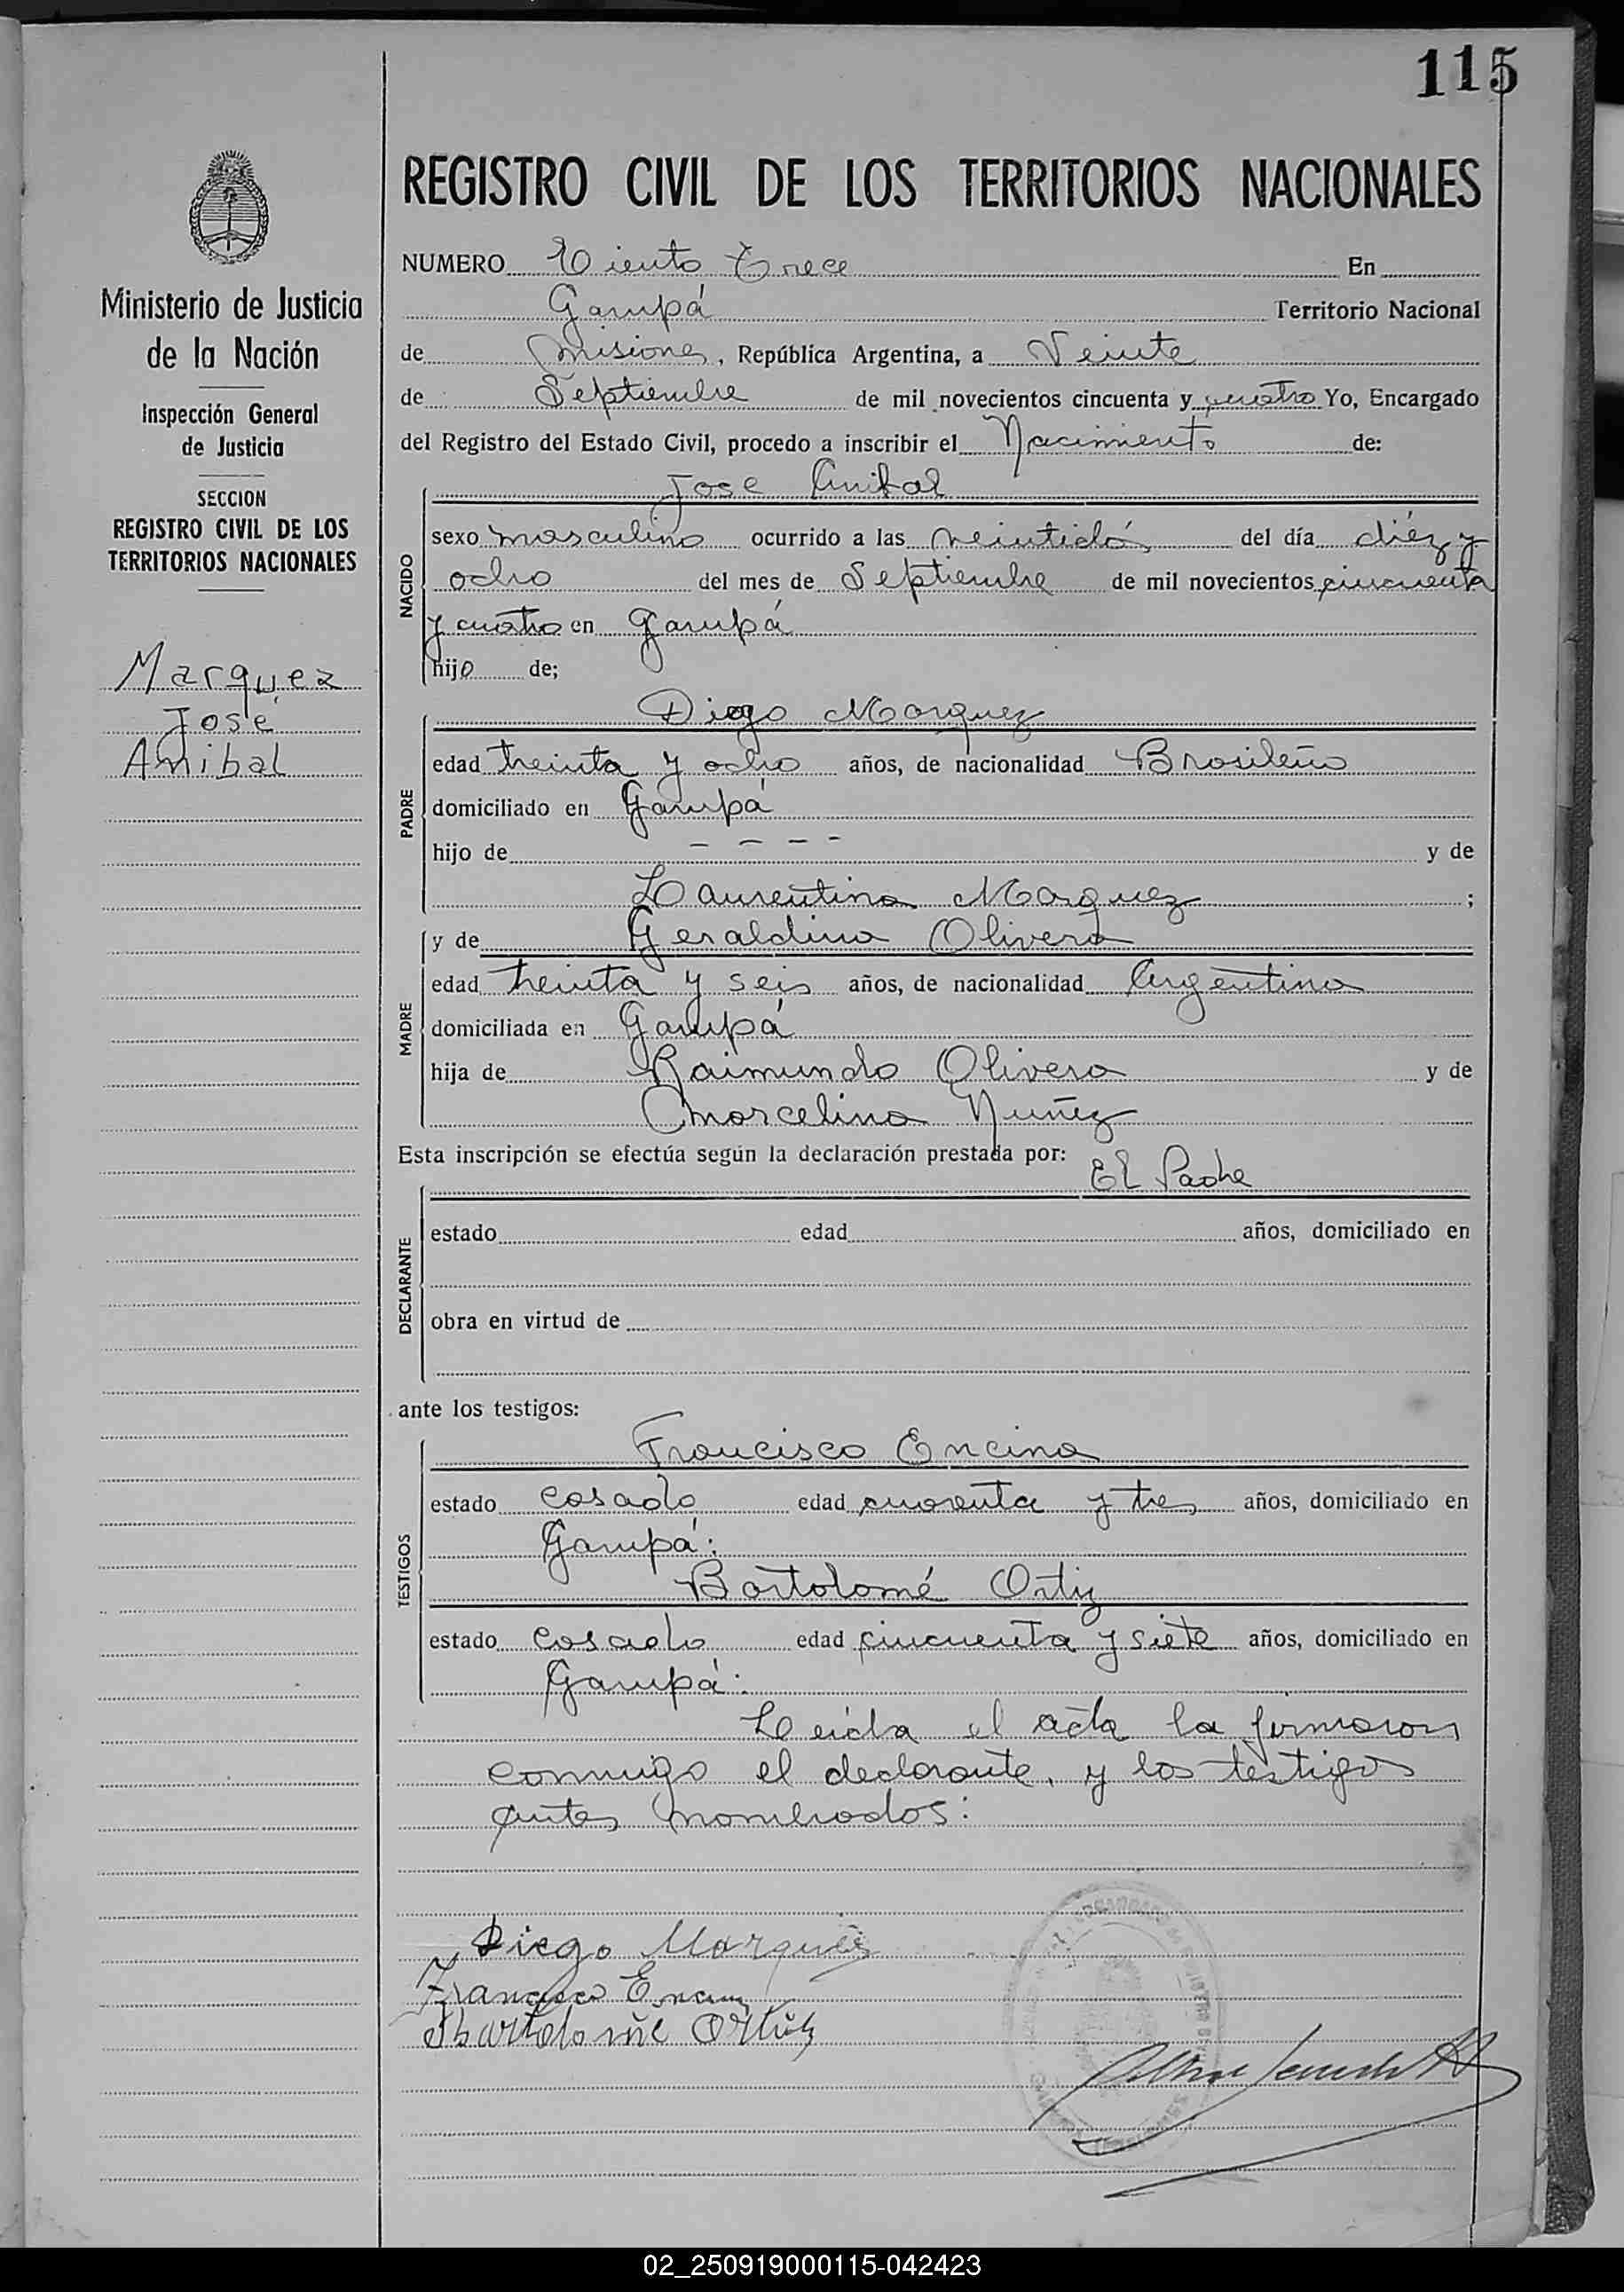 115
REGISTRO CIVIL DE LOS TERRITORIOS NACIONALES
Ministerio de Justicia
de la Nación
Inspección General
de Justicia
SECCION
REGISTRO CIVIL DE LOS
TERRITORIOS NACIONALES
Marquez
José
Anibal
NUMERO Ciento Trece En
Garupá Territorio Nacional
de Misiones, República Argentina, a Veinte
de Septiembre de mil novecientos cincuenta y cuatro Yo, Encargado
del Registro del Estado Civil, procedo a inscribir el Nacimiento de:
NACIDO
Jose Anibal
sexo masculino ocurrido a las veintidós del día diéz y
ocho del mes de Septiembre de mil novecientos cincuenta
y cuatro en Garupá
hijo de;
PADRE
Diego Marquez
edad treinta y ocho años, de nacionalidad Brasileño
domiciliado en Garupá
hijo de - - - - y de
Laurentina Marquez ;
MADRE
y de Geraldina Olivera
edad treinta y seis años, de nacionalidad Argentina
domiciliada en Garupá
hija de Raimundo Olivera y de
Marcelina Nuñez
Esta inscripción se efectúa según la declaración prestada por:
El Padre
DECLARANTE
estado edad años, domiciliado en
obra en virtud de
ante los testigos:
TESTIGOS
Francisco Encina
estado casado edad cuarenta y tres años, domiciliado en
Garupá:
Bartolomé Ortiz
estado casado edad cincuenta y siete años, domiciliado en
Garupá:
Leida el acta la firmaron
conmigo el declarante, y los testigos
antes nombrados:
Diego Marques
Francisco Encina
Bartolome Ortiz
02_250919000115-042423